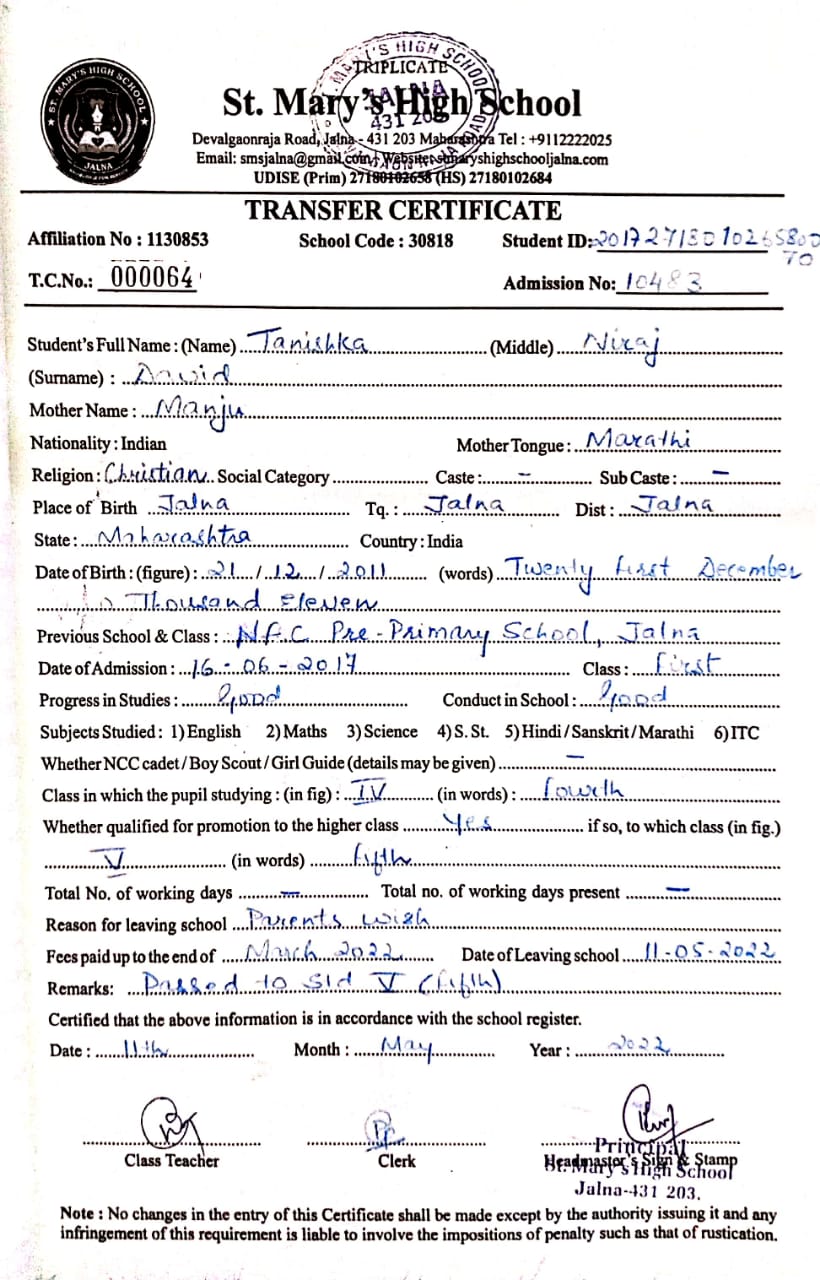 ST. MARY'S HIGH SCHOOL
JALNA
MARY'S HIGH SCHOOL
JALNA
431 203
TRIPLICATE
St. Mary's High School
Devalgaonraja Road, Jalna - 431 203 Maharashtra Tel : +9112222025
Email: smsjalna@gmail.com / Website: stmaryshighschooljalna.com
UDISE (Prim) 27180102658 (HS) 27180102684
TRANSFER CERTIFICATE
Affiliation No : 1130853 School Code : 30818 Student ID: 2017271801026580070
T.C.No.: 000064 Admission No: 10483
Student's Full Name : (Name) Tanishka (Middle) Niraj
(Surname) : David
Mother Name : Manju
Nationality : Indian Mother Tongue : Marathi
Religion : Christian Social Category Caste : - Sub Caste : -
Place of Birth Jalna Tq. : Jalna Dist : Jalna
State : Maharashtra Country : India
Date of Birth : (figure) : 21 / 12 / 2011 (words) Twenty first December
Thousand Eleven
Previous School & Class : N.F.C Pre-Primary School, Jalna
Date of Admission : 16-06-2017 Class : first
Progress in Studies : Good Conduct in School : Good
Subjects Studied : 1) English 2) Maths 3) Science 4) S. St. 5) Hindi / Sanskrit / Marathi 6) ITC
Whether NCC cadet / Boy Scout / Girl Guide (details may be given) -
Class in which the pupil studying : (in fig) : IV (in words) : fourth
Whether qualified for promotion to the higher class Yes if so, to which class (in fig.)
V (in words) fifth
Total No. of working days - Total no. of working days present -
Reason for leaving school Parents wish
Fees paid up to the end of March 2022 Date of Leaving school 11-05-2022
Remarks: Passed to Std V (fifth)
Certified that the above information is in accordance with the school register.
Date : 11th Month : May Year : 2022
Class Teacher Clerk Headmaster's Sign & Stamp
Principal
St. Mary's High School
Jalna-431 203.
Note : No changes in the entry of this Certificate shall be made except by the authority issuing it and any
infringement of this requirement is liable to involve the impositions of penalty such as that of rustication.